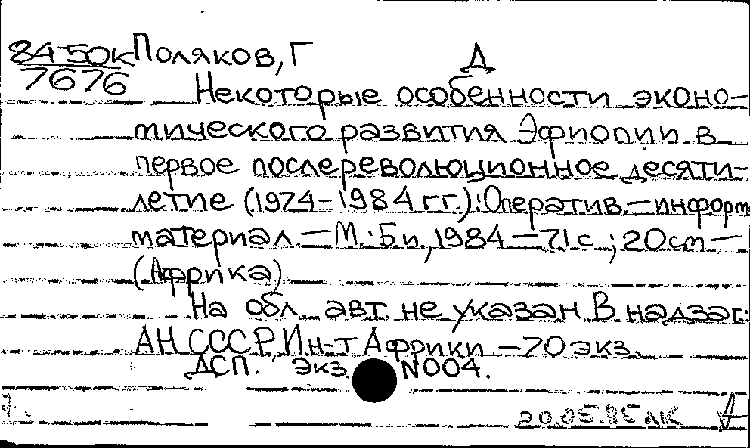 84-50к Поляков, Г Д
7676
Некоторые особенности эконо-
мического развития Эфиопии в
первое послереволюционное десяти-
летие (1974-1984 гг.): Оператив.-информ
материал. - М.: Б.и., 1984 - 71 с.; 20 см -
(Африка)
На обл. авт. не указан. В надзаг:
АН СССР, Ин-т Африки - 70 экз.
ДСП. Экз N004.